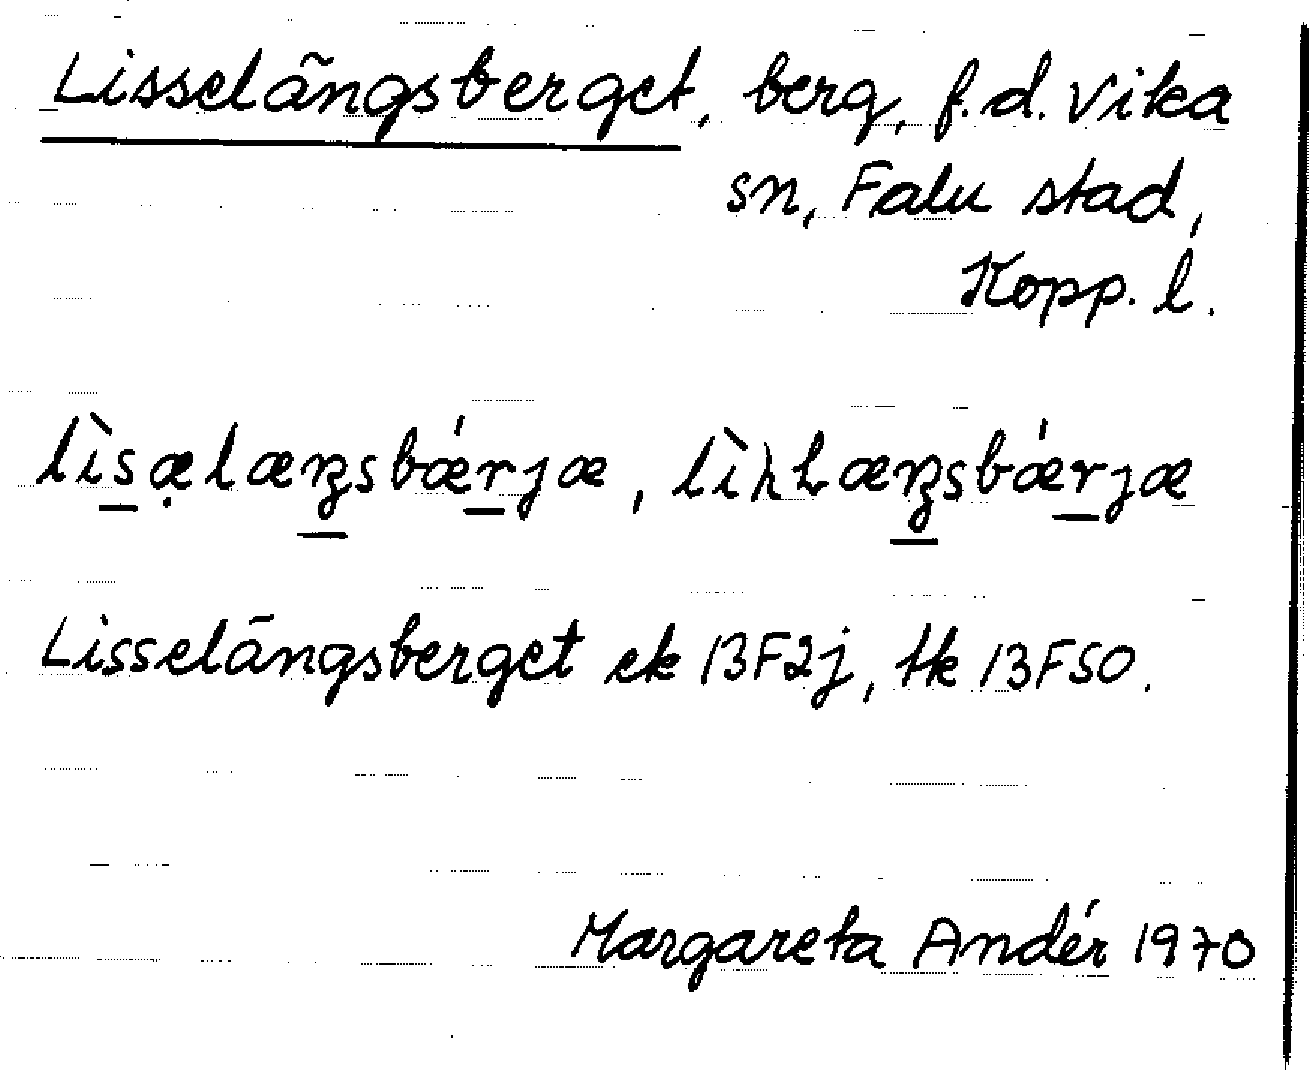 Lisselängsberget, berg, f.d. Vika
sn, Falu stad,
Kopp. l.
lìsæ̣læŋsbǽrjæ, lìhlæŋsbǽrjæ
Lisselängsberget ek 13F2j, tk 13F50.
Margareta Andér 1970